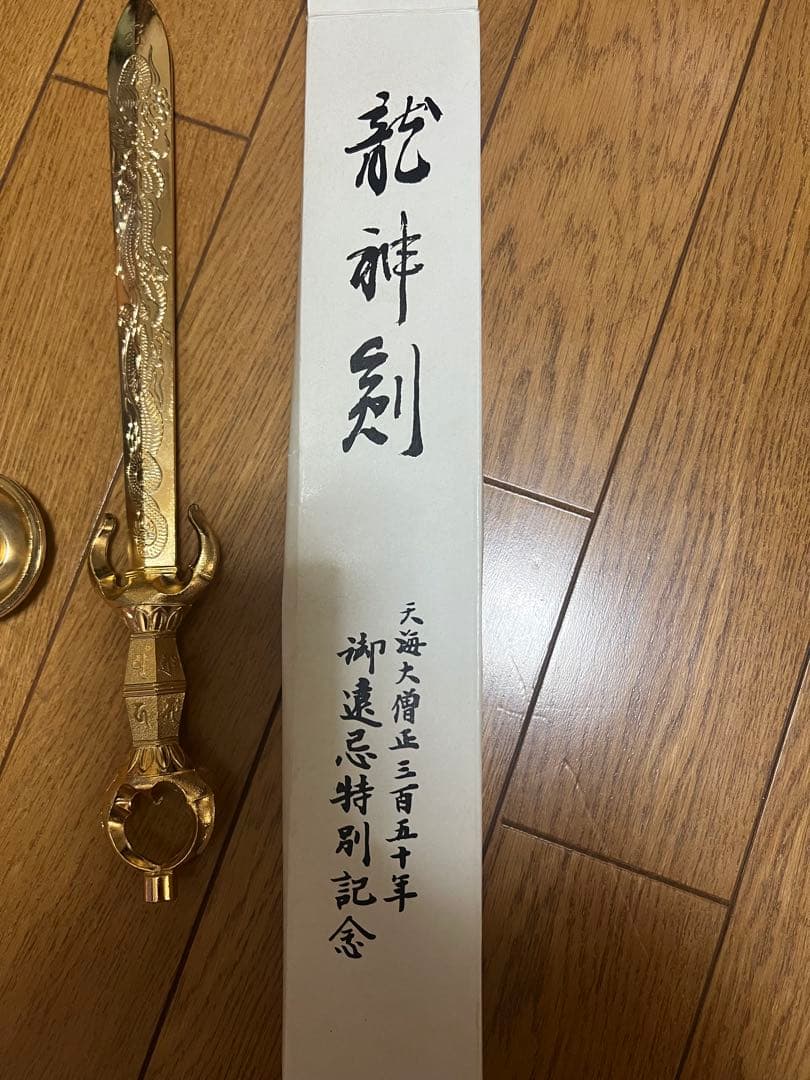 龍神剣
天海大僧正三百五十年
御遠忌特別記念